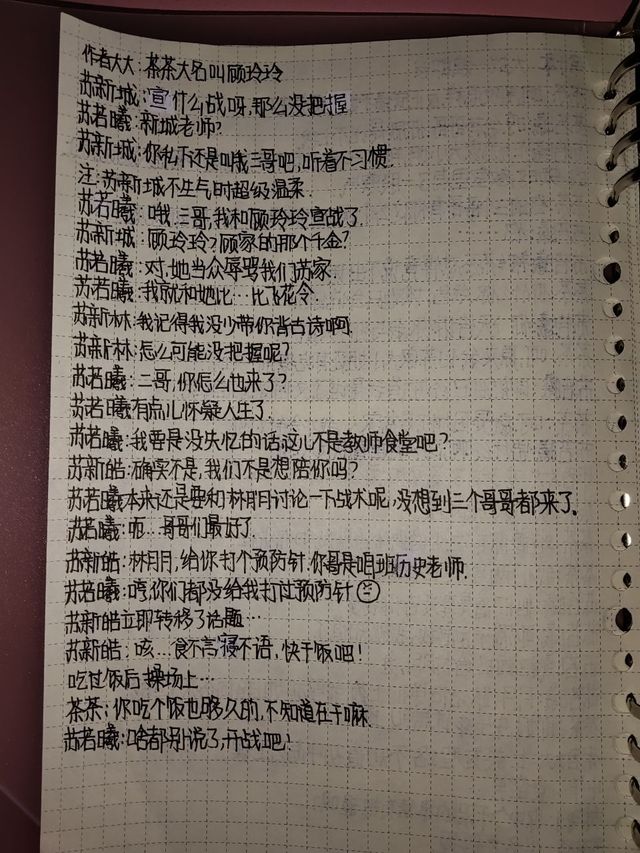 作者大大：茶茶大名叫顾玲玲
苏新城：宣什么战呀,那么没把握
苏若曦：新城老师？
苏新城：你私下还是叫我三哥吧，听着不习惯.
注：苏新城不生气时超级温柔.
苏若曦：哦,三哥,我和顾玲玲宣战了.
苏新城：顾玲玲？顾家的那个千金？
苏若曦：对,她当众辱骂我们苏家.
苏若曦：我就和她比…比飞花令.
苏新林：我记得我没少带你背古诗啊.
苏新林：怎么可能没把握呢？
苏若曦：二哥,你怎么也来了？
苏若曦有点儿怀疑人生了.
苏若曦：我要是没失忆的话这儿不是教师食堂吧？
苏新皓：确实不是,我们不是想陪你吗？
苏若曦本来还是要和林月月讨论一下战术呢,没想到三个哥哥都来了.
苏若曦：呃…哥哥们最好了.
苏新皓：林月月,给你打个预防针.你哥是咱班历史老师.
苏若曦：哼,你们都没给我打过预防针☹
苏新皓立即转移了话题…
苏新皓：咳…食不言寝不语,快干饭吧！
吃过饭后操场上…
茶茶：你吃个饭也够久的,不知道在干嘛.
苏若曦：啥都别说了,开战吧！